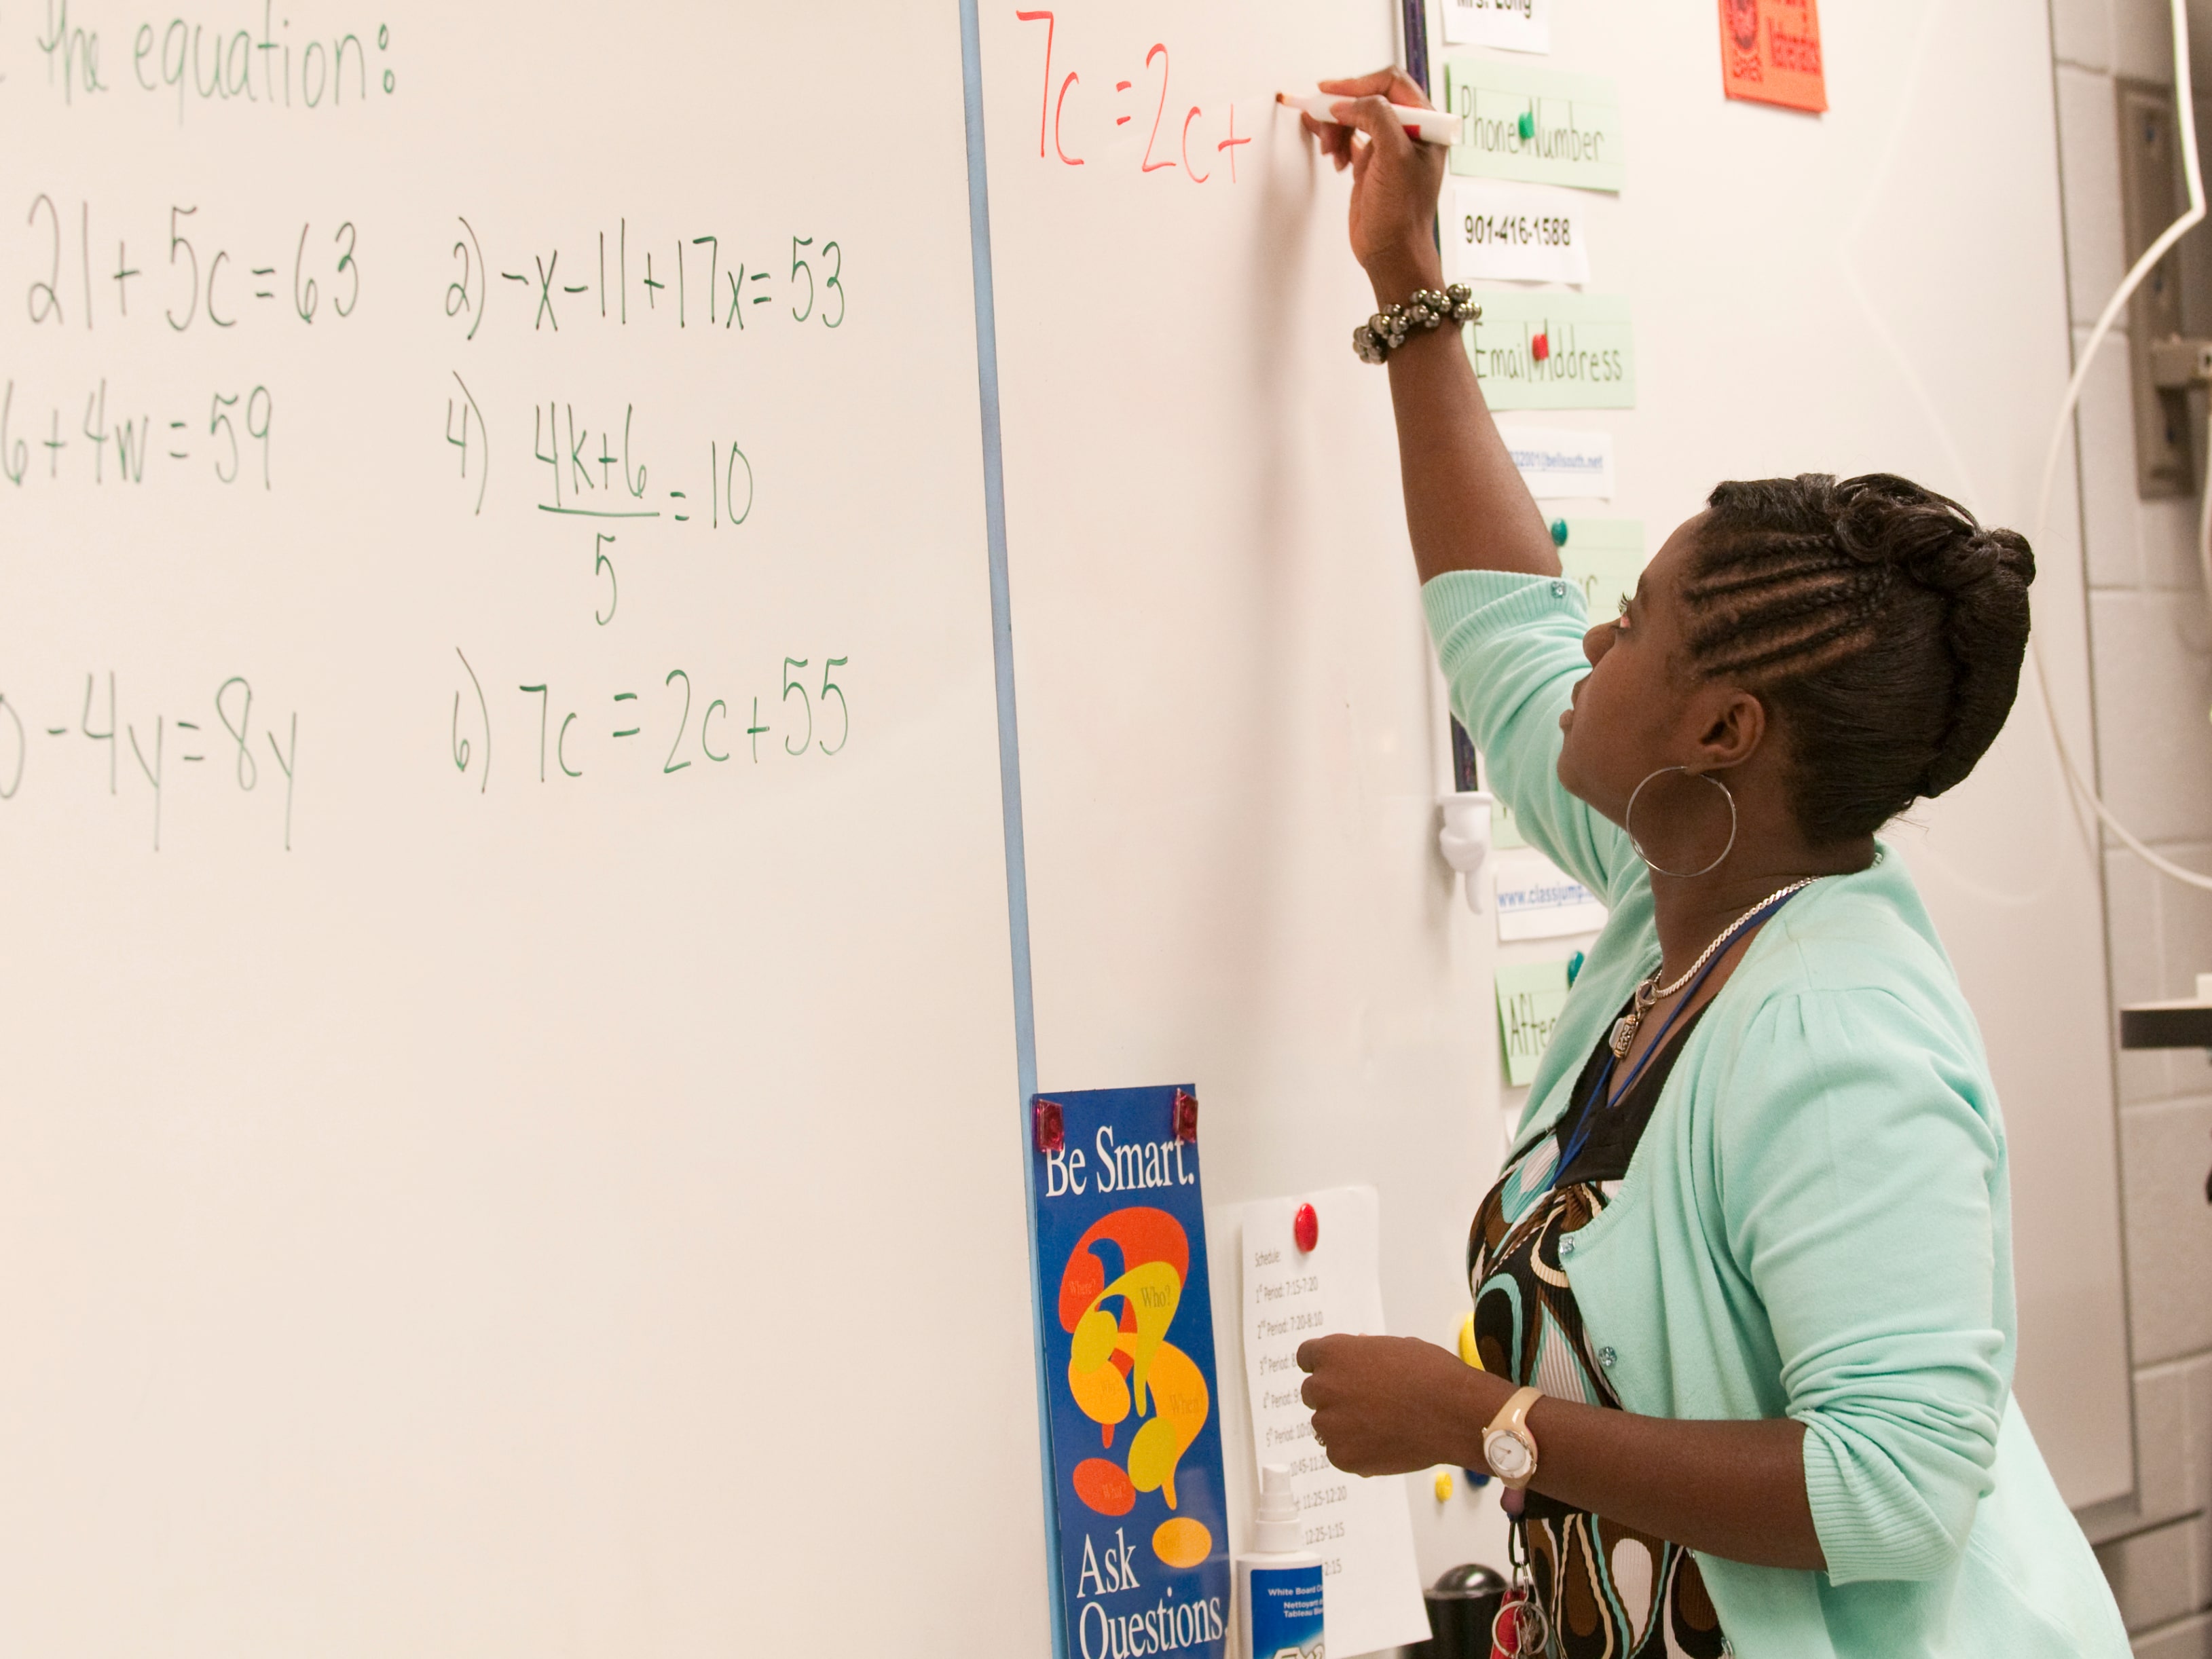 the equation:
21 + 5c = 63
2) -x-11+17x = 53
6 + 4w = 59
4) 4k+6
= 10
5
- 4y = 8y
6) 7c = 2c + 55
7c = 2c +
Mrs. Long
Phone Number
901-416-1588
Email Address
@bellsouth.net
www.classjump
Be Smart.
Where?
Who?
When?
What?
Ask
Questions.
Schedule:
1st Period: 7:15-7:20
2nd Period: 7:20-8:10
3rd Period: 8
4th Period: 9
5th Period: 10:
10:45-11:20
11:25-12:20
12:25-1:15
2:15
White Board
Nettoyant
Tableau